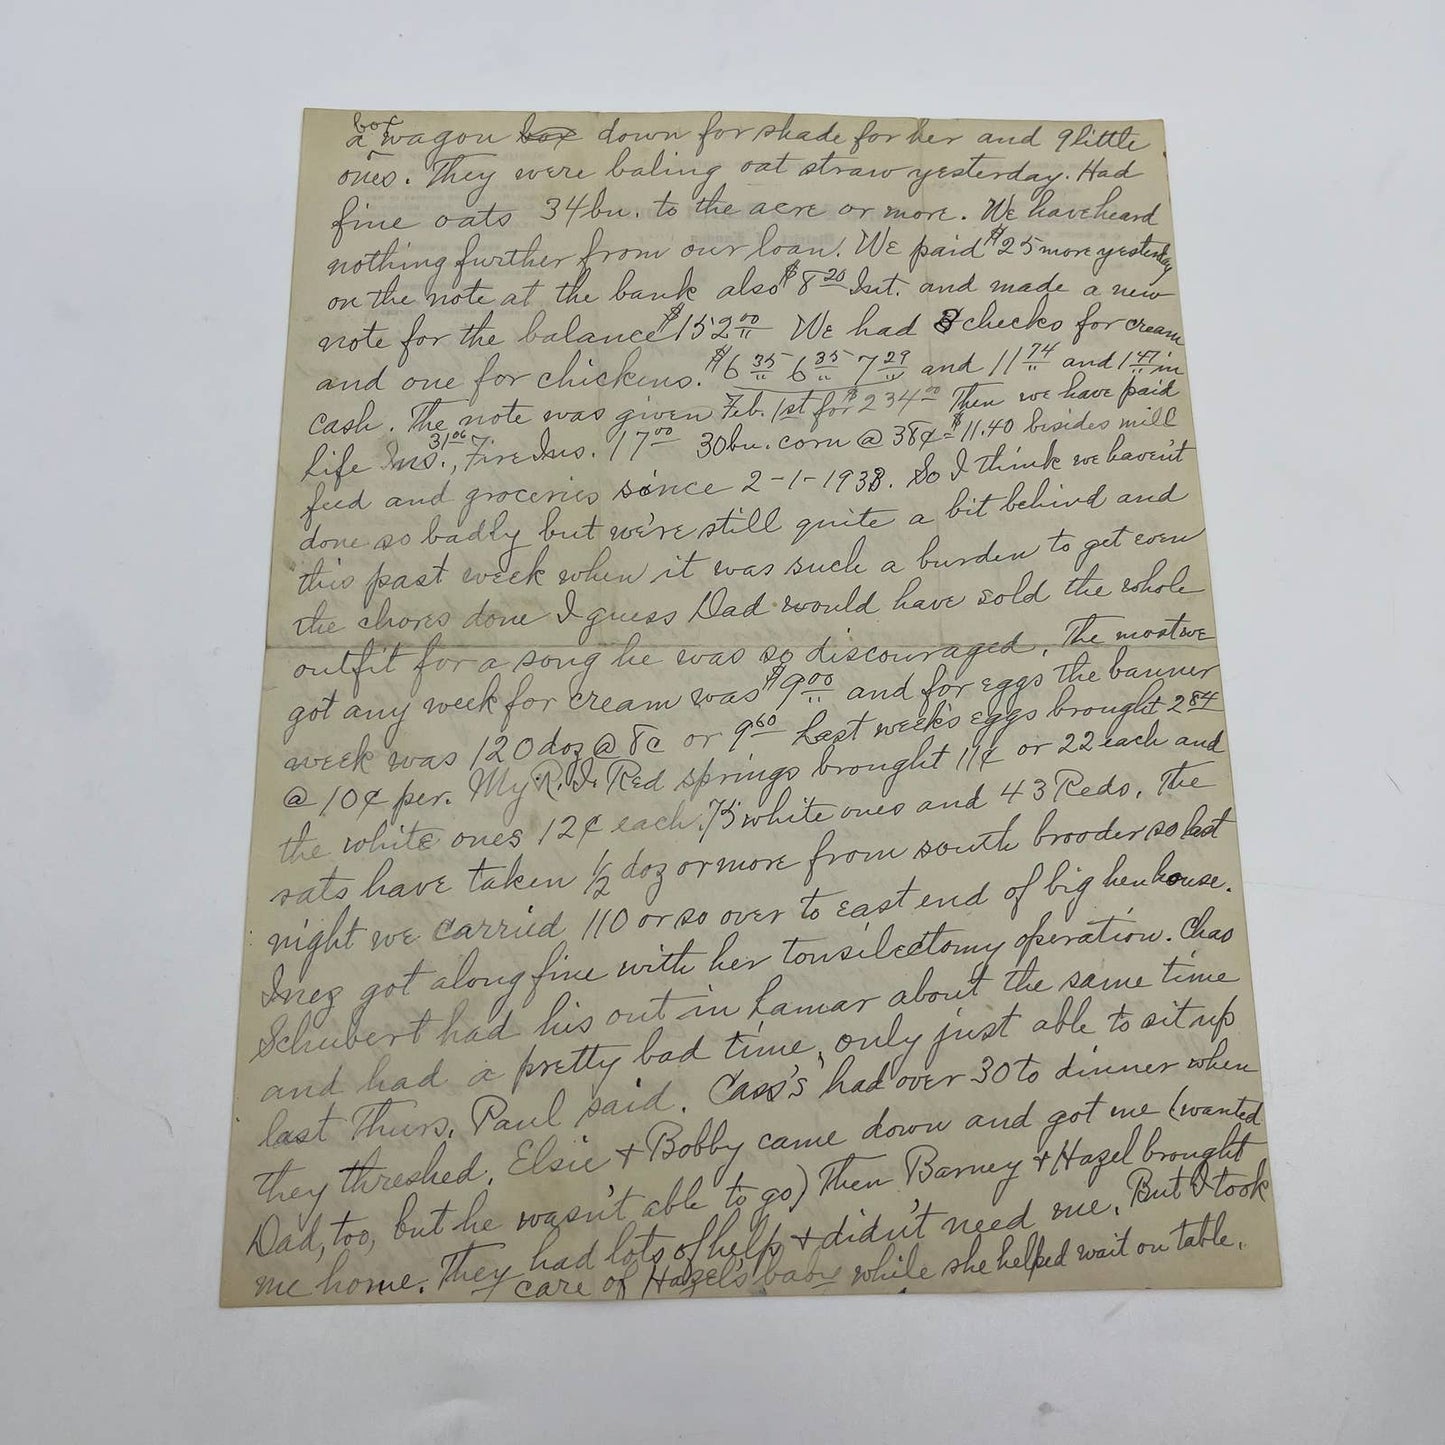 a box wagon box down for shade for her and 9 little
ones. They were baling oat straw yesterday. Had
fine oats 34 bu. to the acre or more. We have heard
nothing further from our loan. We paid $25 more yesterday
on the note at the bank also $8 20 Int. and made a new
note for the balance $152 00 We had 3 checks for cream
and one for chickens. $6 35 6 35 7 29 and 11 74 and 1 47 in
cash. The note was given Feb. 1st for $234 00 Then we have paid
Life Ins. 31 06, Fire Ins. 17 00 30 bu. corn @ 38¢ = $11.40 besides mill
feed and groceries since 2-1-1938. So I think we haven't
done so badly but we're still quite a bit behind and
this past week when it was such a burden to get even
the chores done I guess Dad would have sold the whole
outfit for a song he was so discouraged. The most we
got any week for cream was $9 00 and for eggs the banner
week was 120 doz @ 8¢ or 9 60 Last week's eggs brought 2 84
@ 10¢ per. My R. I. Red springs brought 11¢ or 22 each and
the white ones 12¢ each. 75 white ones and 43 Reds. The
rats have taken 1/2 doz or more from south brooder so last
night we carried 110 or so over to east end of big henhouse.
Inez got along fine with her tonsilectomy operation. Chas
Schubert had his out in Lamar about the same time
and had a pretty bad time, only just able to sit up
last Thurs. Paul said. Cass's had over 30 to dinner when
they threshed. Elsie + Bobby came down and got me (wanted
Dad, too, but he wasn't able to go) Then Barney + Hazel brought
me home. They had lots of help + didn't need me. But I took
care of Hazel's baby while she helped wait on table.